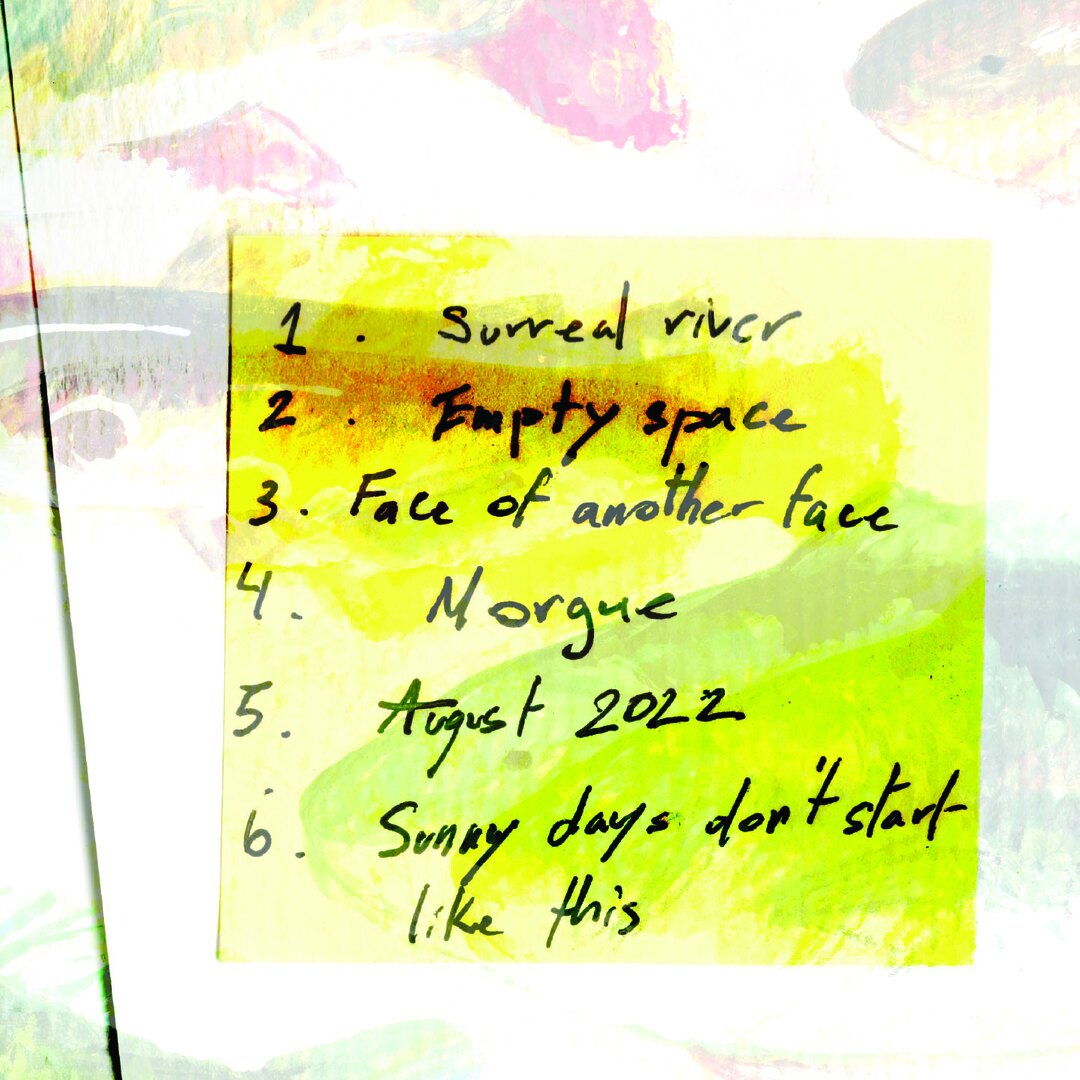 1. Surreal river
2. Empty space
3. Face of another face
4. Morgue
5. August 2022
6. Sunny days don't start
like this